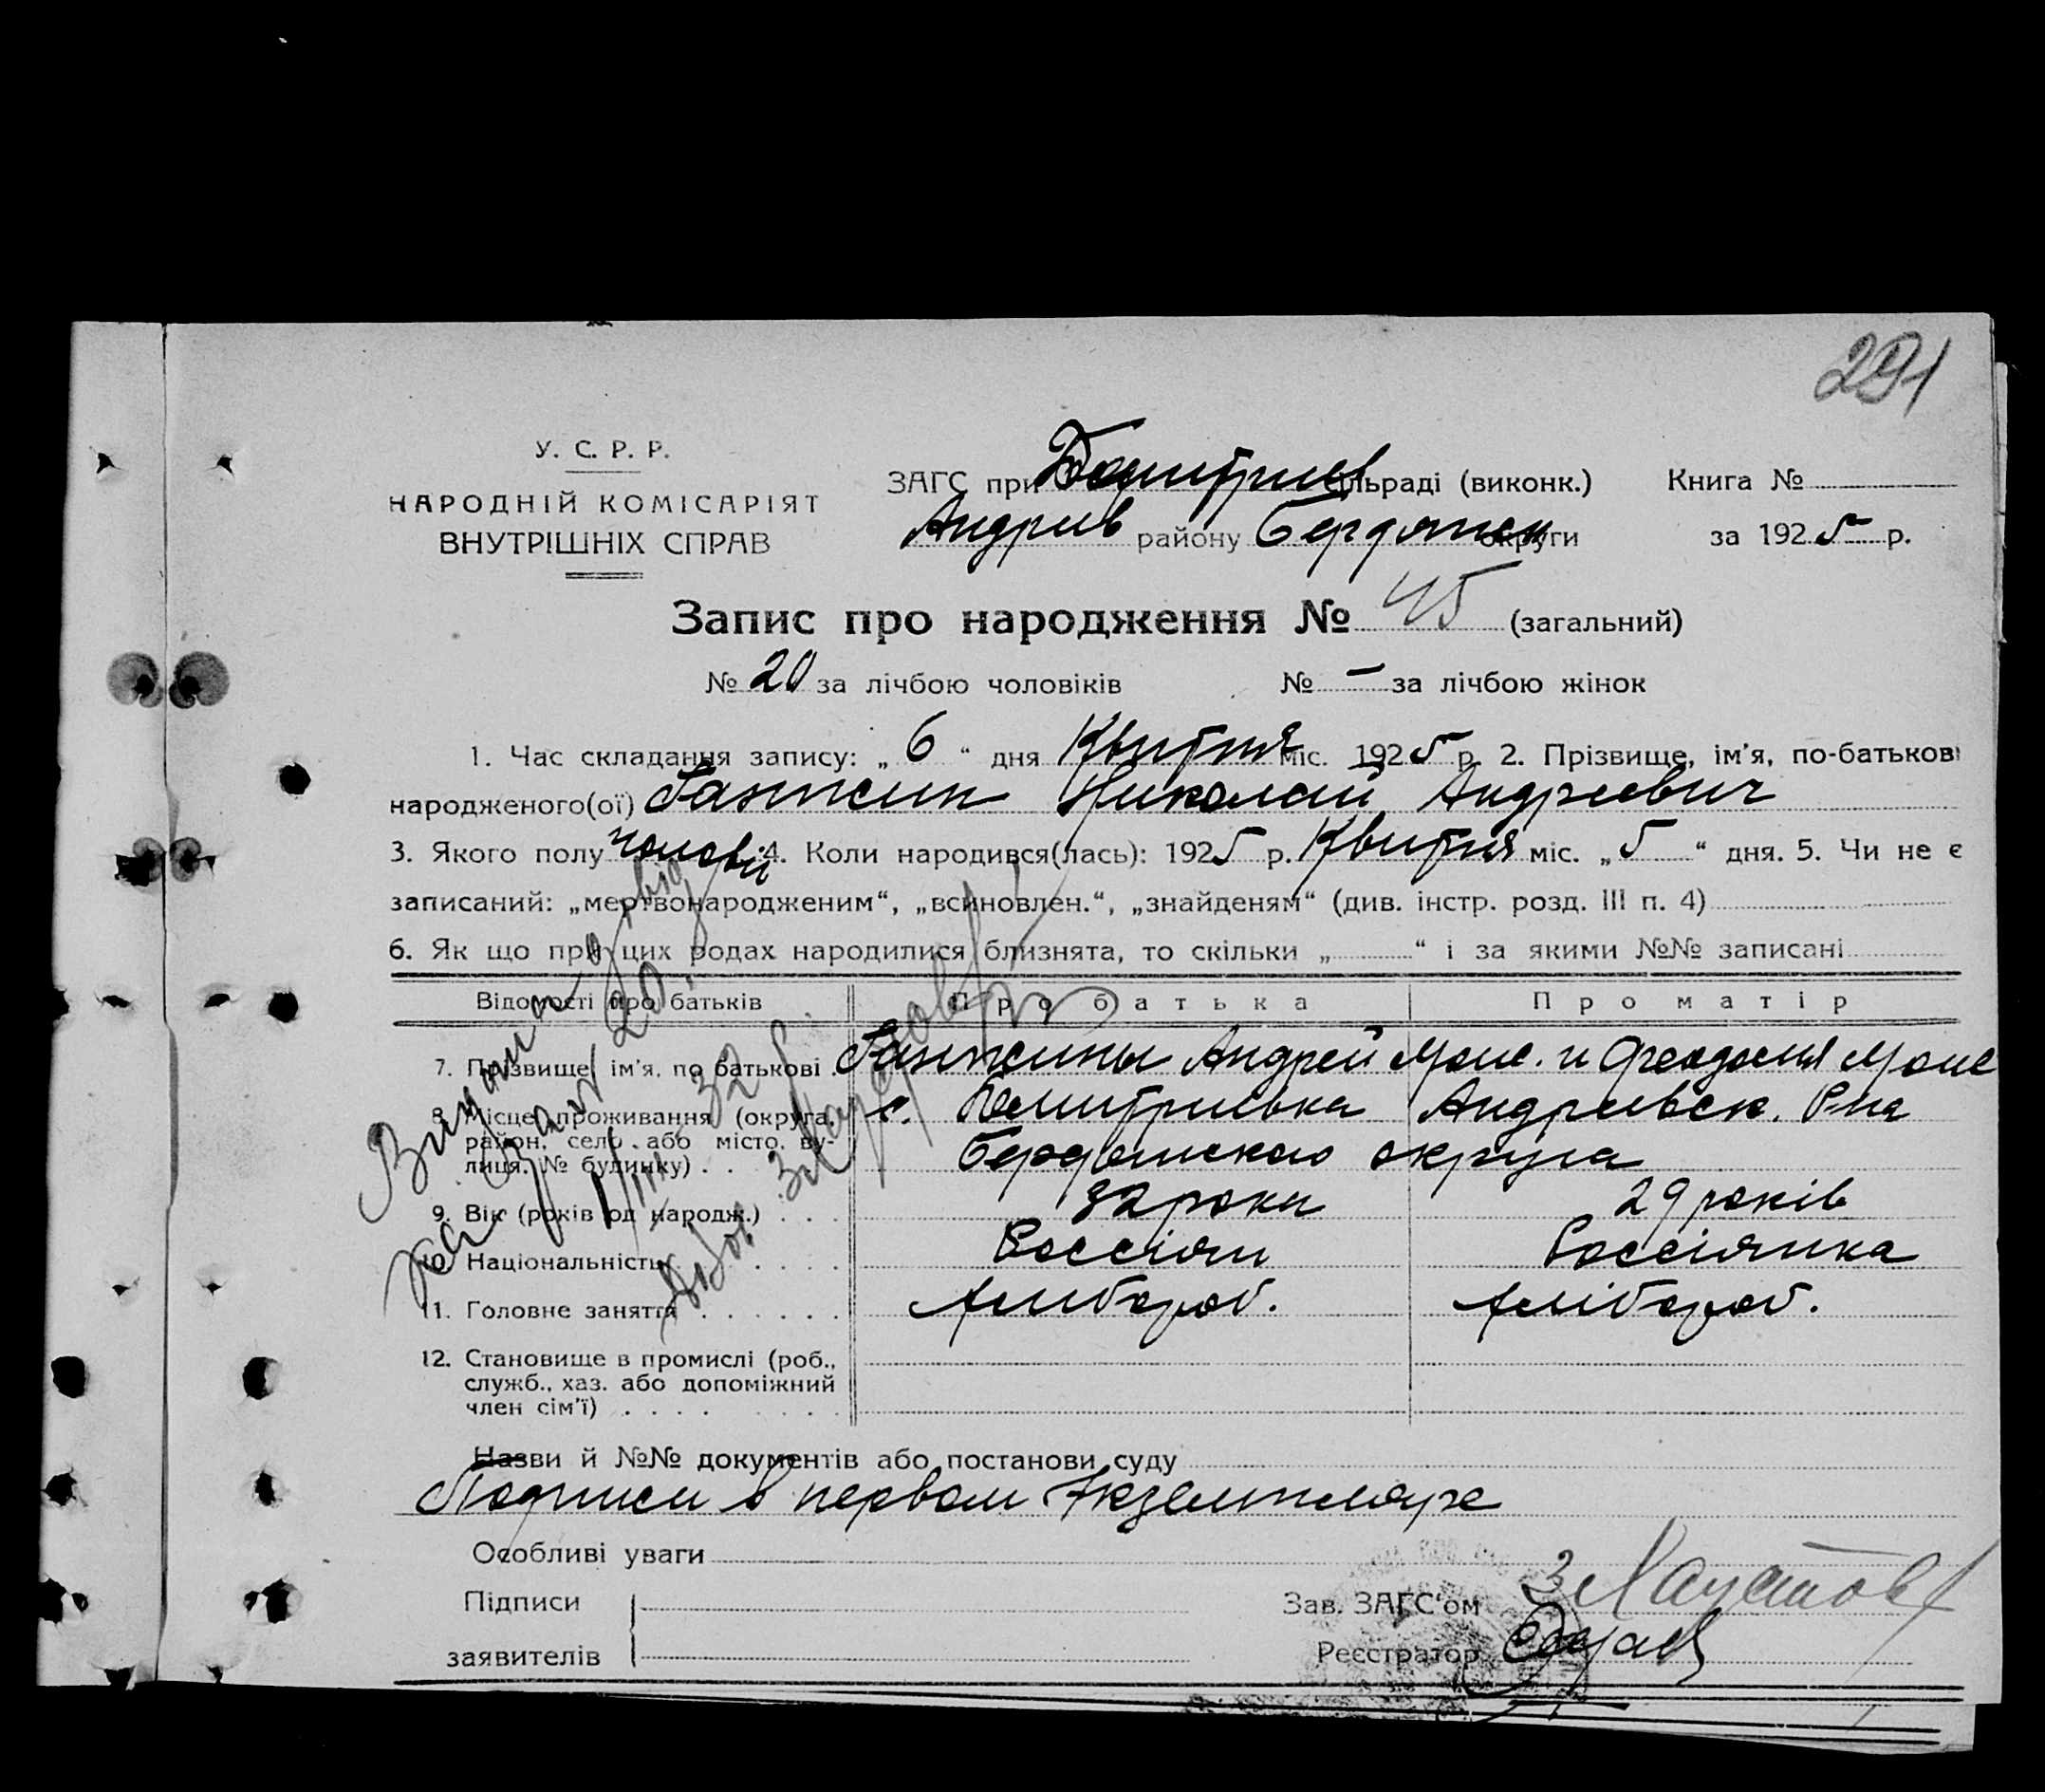 291
У. С. Р. Р.
НАРОДНІЙ КОМІСАРІЯТ
ВНУТРІШНІХ СПРАВ
ЗАГС при Дмитриев сільраді (виконк.)
Книга №
Андрив району Бердянск округи
за 1925 р.
Запис про народження № 45 (загальний)
№ 20 за лічбою чоловіків № – за лічбою жінок
1. Час складання запису: „ 6 “ дня Квитня міс. 1925 р. 2. Прізвище, ім'я, по-батькові
народженого(ої) Ганжин Николай Андреевич
3. Якого полу чолові 4. Коли народився(лась): 1925 р. Квитня міс. „ 5 “ дня. 5. Чи не є
записаний: „мертвонародженим“, „всиновлен.“, „знайденям“ (див. інстр. розд. III п. 4)
6. Як що при цих родах народилися близнята, то скільки „ “ і за якими №№ записані
Відомості про батьків Про батька Про матір
7. Прізвище, ім'я, по батькові . Ганжины Андрей Моис. и Феодосия Моис
8. Місце проживання (округа, с. Дмитриевка Андреевск. Р-на
район, село або місто, ву-
лиця, № будинку) . . Бердянского округа
9. Вік (років од народж.) . . . 32 роки 29 років
10. Національність . . . . Россіян Россіянка
11. Головне заняття . . . . . . Хлибороб. Хлібороб.
12. Становище в промислі (роб.,
служб., хаз. або допоміжний
член сім'ї) . . . .
Назви й №№ документів або постанови суду
Подписи в первом Экземпляре
Особливі уваги
Підписи
заявителів
Зав. ЗАГС'ом З Хаустов
Реєстратор